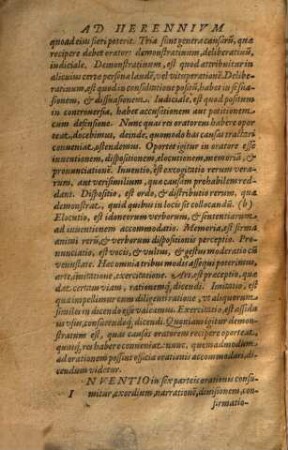 AD HERENNIVM
quoad eius fieri poterit. Tria sunt genera causarũ, quæ
recipere debet orator: demonstratiuum, deliberatiuũ,
iudiciale. Demonstratiuum, est quod attribuitur in
alicuius certæ personæ laudẽ, vel vituperationẽ. Delibe-
ratiuum, est quod in consultatione positũ, habet in se suasi-
onem, & dissuasionem. Iudiciale, est quod positum
in controuersia, habet accusationem aut petitionem,
cum defensione. Nunc quas res oratorem habere opor-
teat, docebimus, deinde, quomodo has causas tractari
conueniat, ostendemus. Oportet igitur in oratore esse
inuentionem, dispositionem, elocutionem, memoriã, &
pronuntiationẽ. Inuentio, est excogitatio rerum vera-
rum, aut verisimilium, quæ causam probabilem red-
dant. Dispositio, est ordo, & distributio rerum, quæ
demonstrat, quid quibus in locis sit collocandũ. (b)
Elocutio, est idoneorum verborum, & sententiarum
ad inuentionem accommodatio. Memoria, est firma
animi rerũ, & verborum dispositionis perceptio. Pro-
nuntiatio, est vocis, & vultus, & gestus moderatio cũ
venustate. Hæc omnia tribus modis assequi poterimus,
arte, imitatione, exercitatione. Ars, est præceptio, quæ
dat certam viam, rationemq́; dicendi. Imitatio, est
qua impellimur cum diligenti ratione, vt aliquorum
similes in dicendo esse valeamus. Exercitatio, est assidu-
us vsus, consuetudoq́; dicendi. Quoniam igitur demon-
stratum est, quas causas oratorem recipere oporteat,
quasq́; res habere conueniat: nunc quemadmodum
ad orationem possint officia oratoris accommodari, di-
cendum videtur.
INVENTIO in sex partes orationis consu-
mitur, exordium, narrationẽ, diuisionem, con-
firmatio-